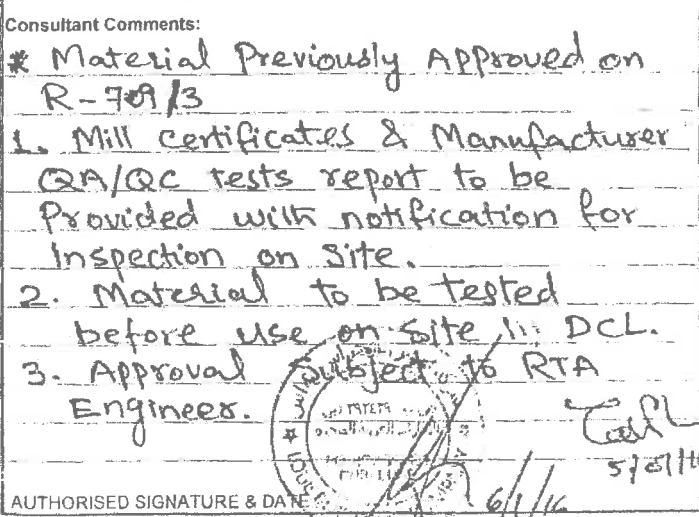 Consultant Comments:
* Material Previously Approved on
R-709/3
1. Mill certificates & Manufacturer
QA/QC tests report to be
Provided with notification for
Inspection on Site.
2. Material to be tested
before use on site in DCL.
3. Approval Subject to RTA
Engineer.
AUTHORISED SIGNATURE & DATE
6/1/16